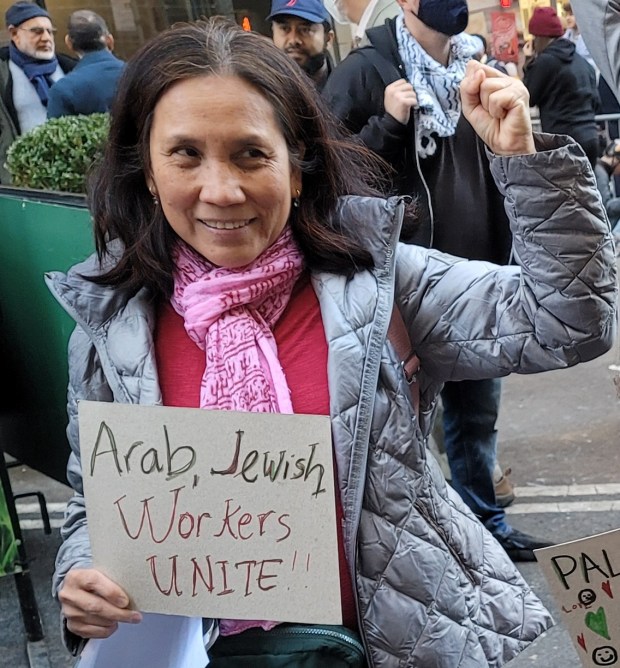 Arab, Jewish
Workers
UNITE!!
PAL
Love